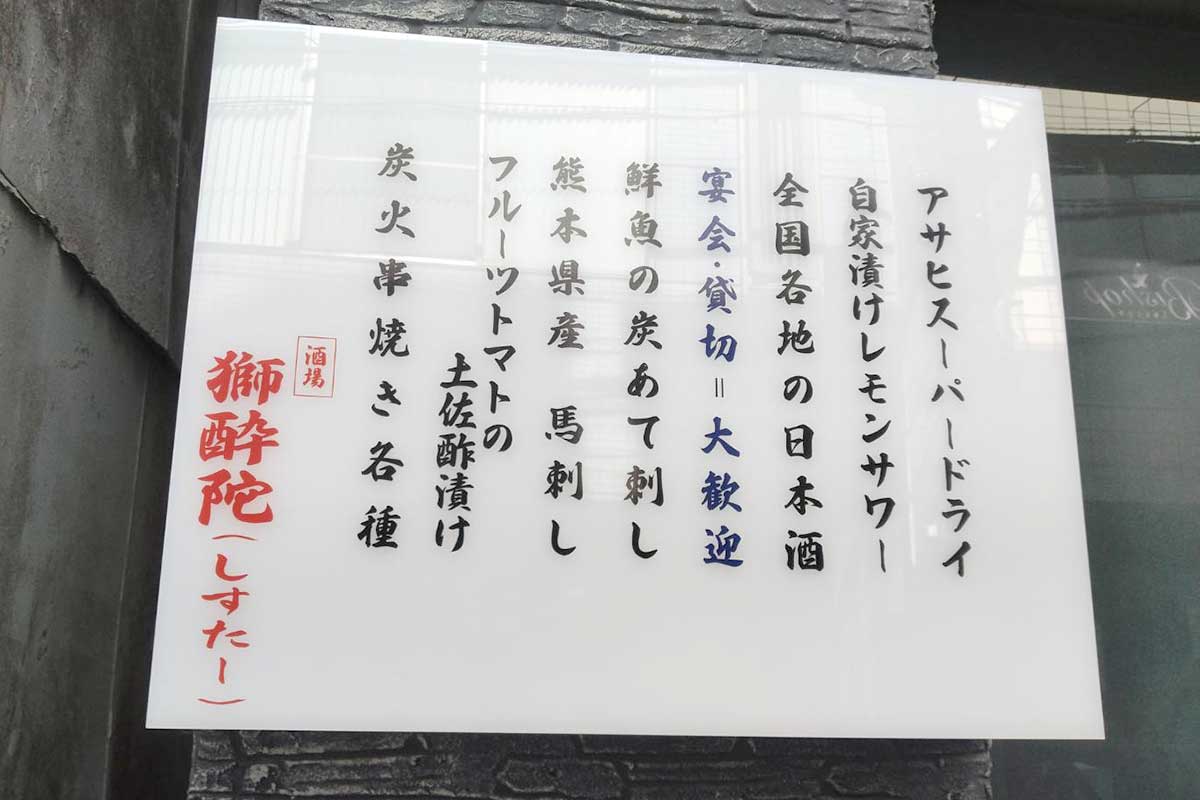 アサヒスーパードライ
自家漬けレモンサワー
全国各地の日本酒
宴会・貸切＝大歓迎
鮮魚の炭あて刺し
熊本県産 馬刺し
フルーツトマトの
土佐酢漬け
炭火串焼き各種
酒場
獅酔陀(しすたー)
Bishop